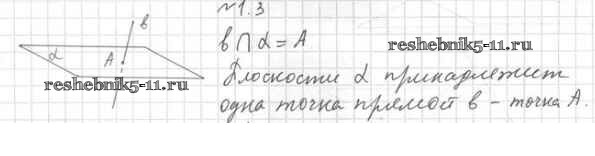 №1.3
b
b ∩ α = A
α
A
reshebnik5-11.ru
reshebnik5-11.ru
Плоскости α принадлежит
одна точка прямой b – точка A.